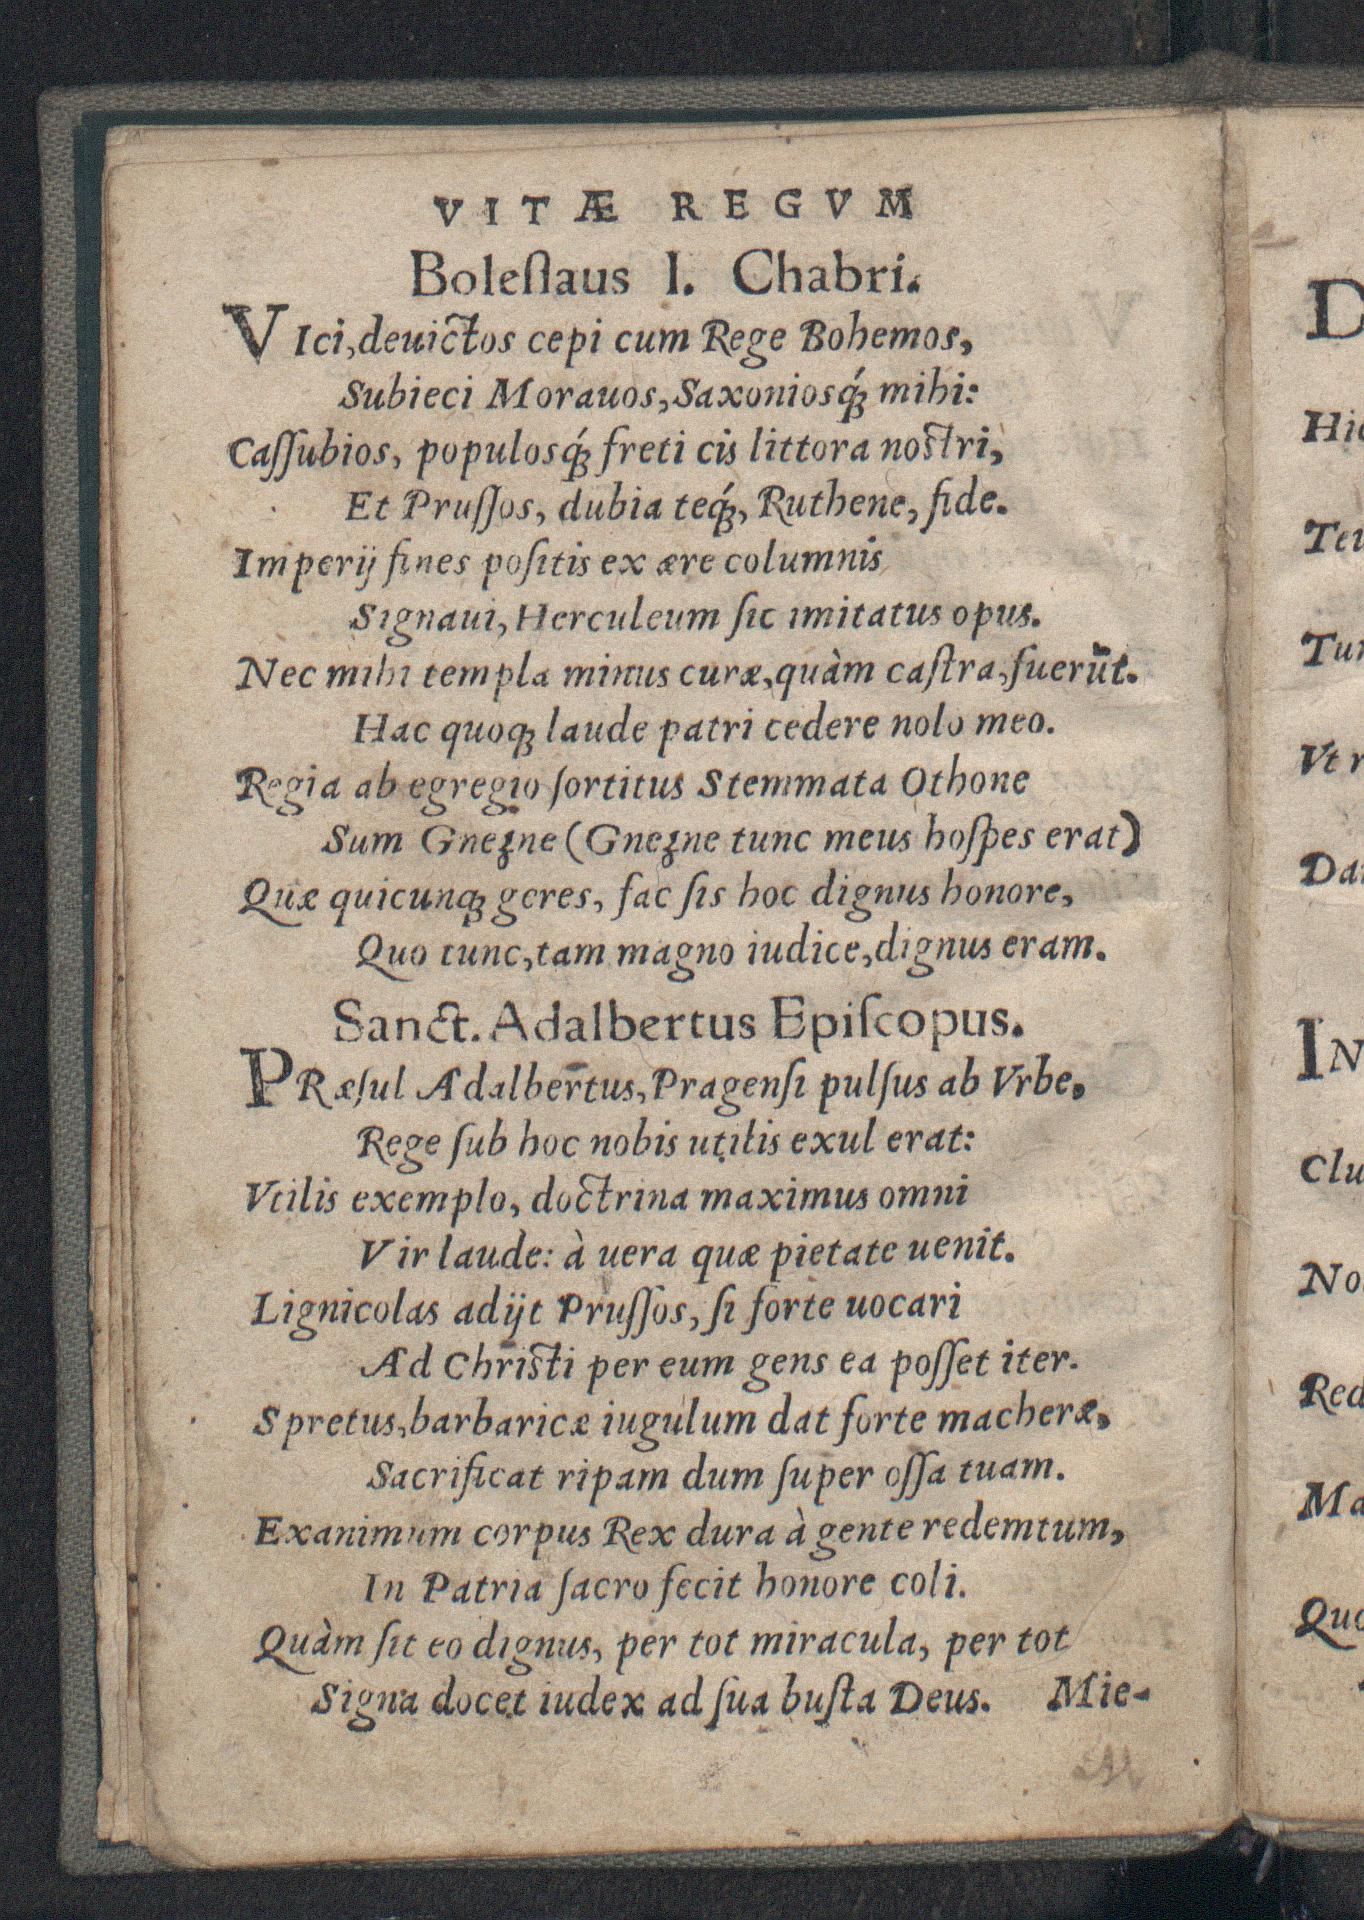 VITÆ REGVM
Boleſlaus I. Chabri.
VIci, deuictos cepi cum Rege Bohemos,
Subieci Morauos, Saxoniosq́ꝫ mihi:
Caſſubios, populosq́ꝫ freti cis littora noſtri,
Et Pruſſos, dubia teq́ꝫ, Ruthene, fide.
Imperij fines poſitis ex ære columnis
Signaui, Herculeum ſic imitatus opus.
Nec mihi templa minus curæ, quàm caſtra, fuerūt.
Hac quoqꝫ laude patri cedere nolo meo.
Regia ab egregio ſortitus Stemmata Othone
Sum Gneʒne (Gneʒne tunc meus hoſpes erat)
Quæ quicunqꝫ geres, fac ſis hoc dignus honore,
Quo tunc, tam magno iudice, dignus eram.
Sanct. Adalbertus Epiſcopus.
PRæſul Adalbertus, Pragenſi pulſus ab Vrbe,
Rege ſub hoc nobis utilis exul erat:
Vtilis exemplo, doctrina maximus omni
Vir laude: à uera quæ pietate uenit.
Lignicolas adijt Pruſſos, ſi forte uocari
Ad Chriſti per eum gens ea poſſet iter.
Spretus, barbaricæ iugulum dat forte macheræ,
Sacrificat ripam dum ſuper oſſa tuam.
Exanimum corpus Rex dura à gente redemtum,
In Patria ſacro fecit honore coli.
Quàm ſit eo dignus, per tot miracula, per tot
Signa docet iudex ad ſua buſta Deus.
Mie-
D
Hic
Tei
Tur
Vt r
Dar
IN
Clu
No
Red
Ma
Quo